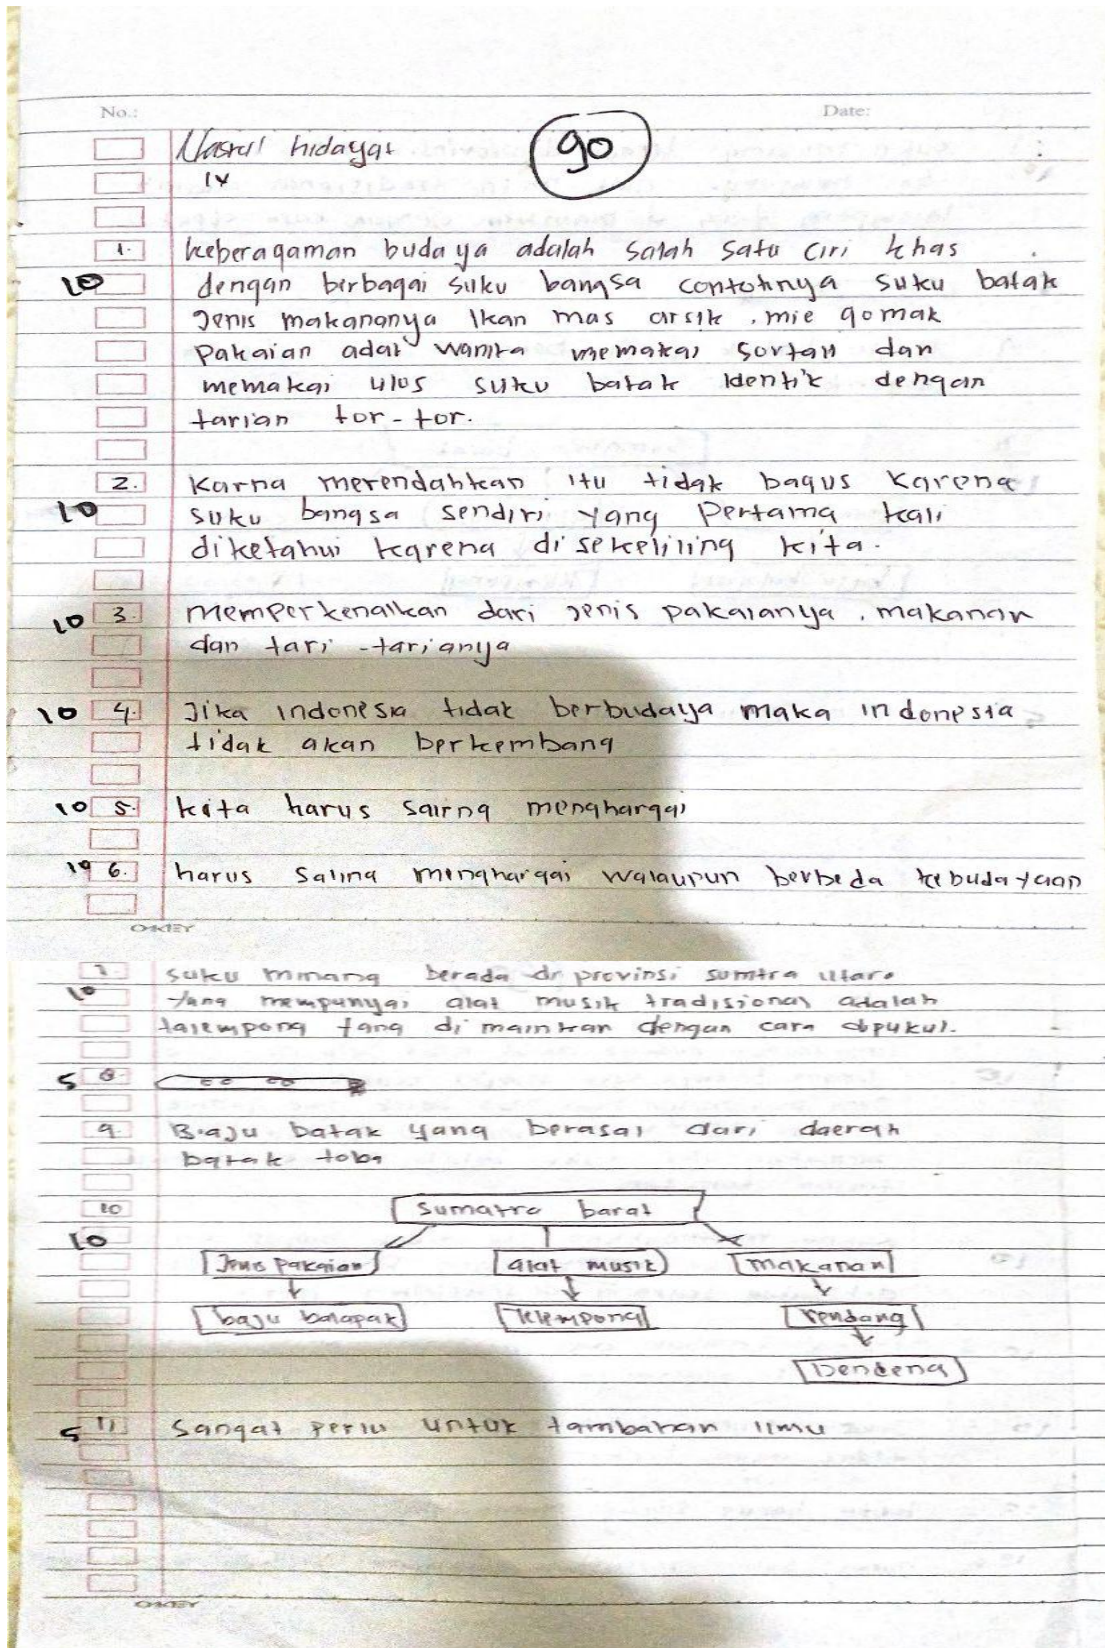 No.:
Date:
Nasrul hidayat
90
IV
1. keberagaman budaya adalah salah satu ciri khas
10 dengan berbagai suku bangsa contohnya suku batak
Jenis makananya Ikan mas arsik, mie gomak
Pakaian adat wanita memakai sortali dan
memakai ulos suku batak identik dengan
tarian tor-tor.
2. Karna merendahkan itu tidak bagus karena
10 suku bangsa sendiri yang pertama kali
diketahui karena disekeliling kita.
10 3. memperkenalkan dari jenis pakaianya, makanan
dan tari-tarianya
10 4. Jika indonesia tidak berbudaya maka indonesia
tidak akan berkembang
10 5. kita harus sairng menghargai
10 6. harus saling menghargai walaupun berbeda kebudayaan
OKEY
7. suku minang berada di provinsi sumtra utara
10 yang mempunyai alat musik tradisional adalah
talempong yang di mainkan dengan cara dipukul.
5 8.
9. Baju batak yang berasal dari daerah
batak toba
10 Sumatra barat
10
Jenis Pakaian alat musik makanan
baju balapak telempong rendang
Dendeng
5 11 Sangat perlu untuk tambahan ilmu
OKEY